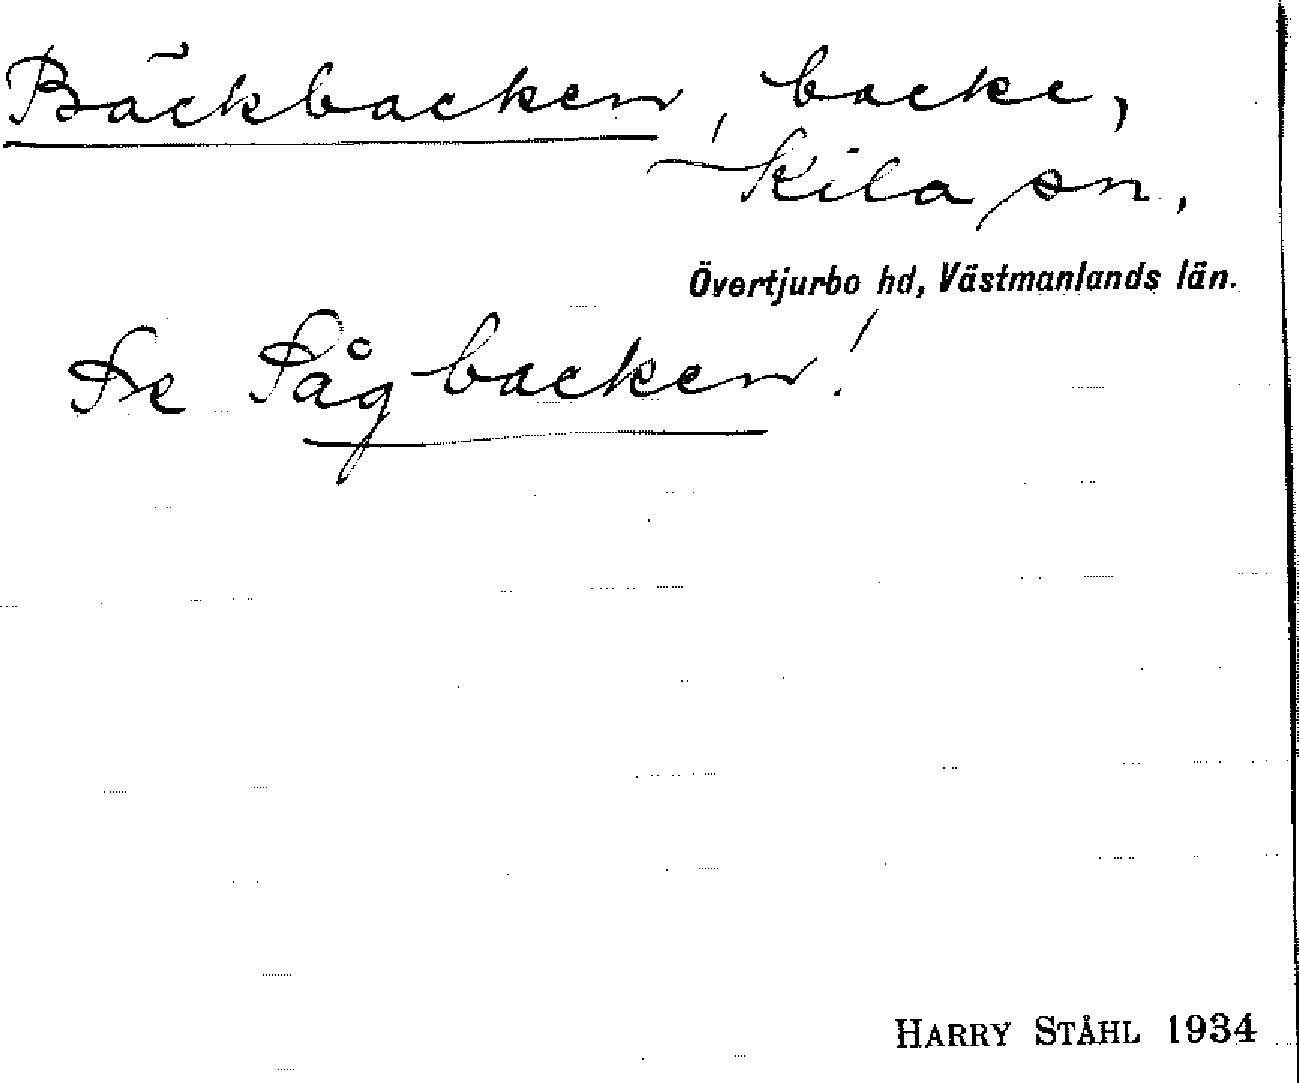 Bäckbacken, backe,
Kila sn,
Övertjurbo hd, Västmanlands län.
Se Sågbacken!
HARRY STÅHL 1934